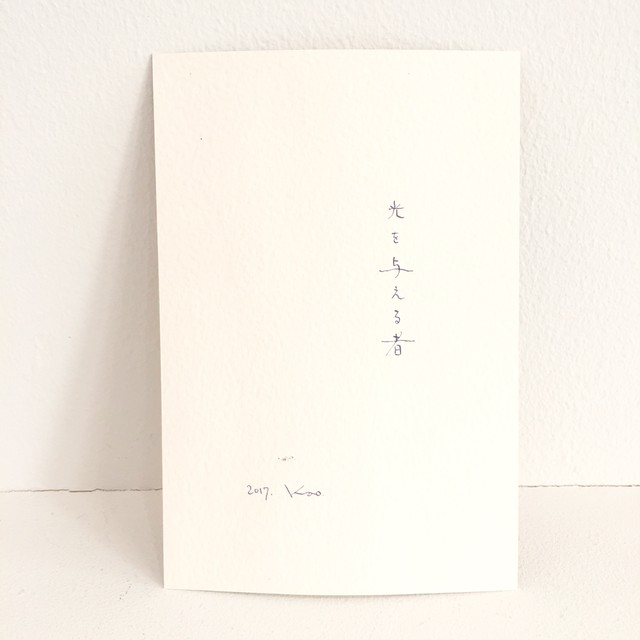 光を与える者
2017. Koo